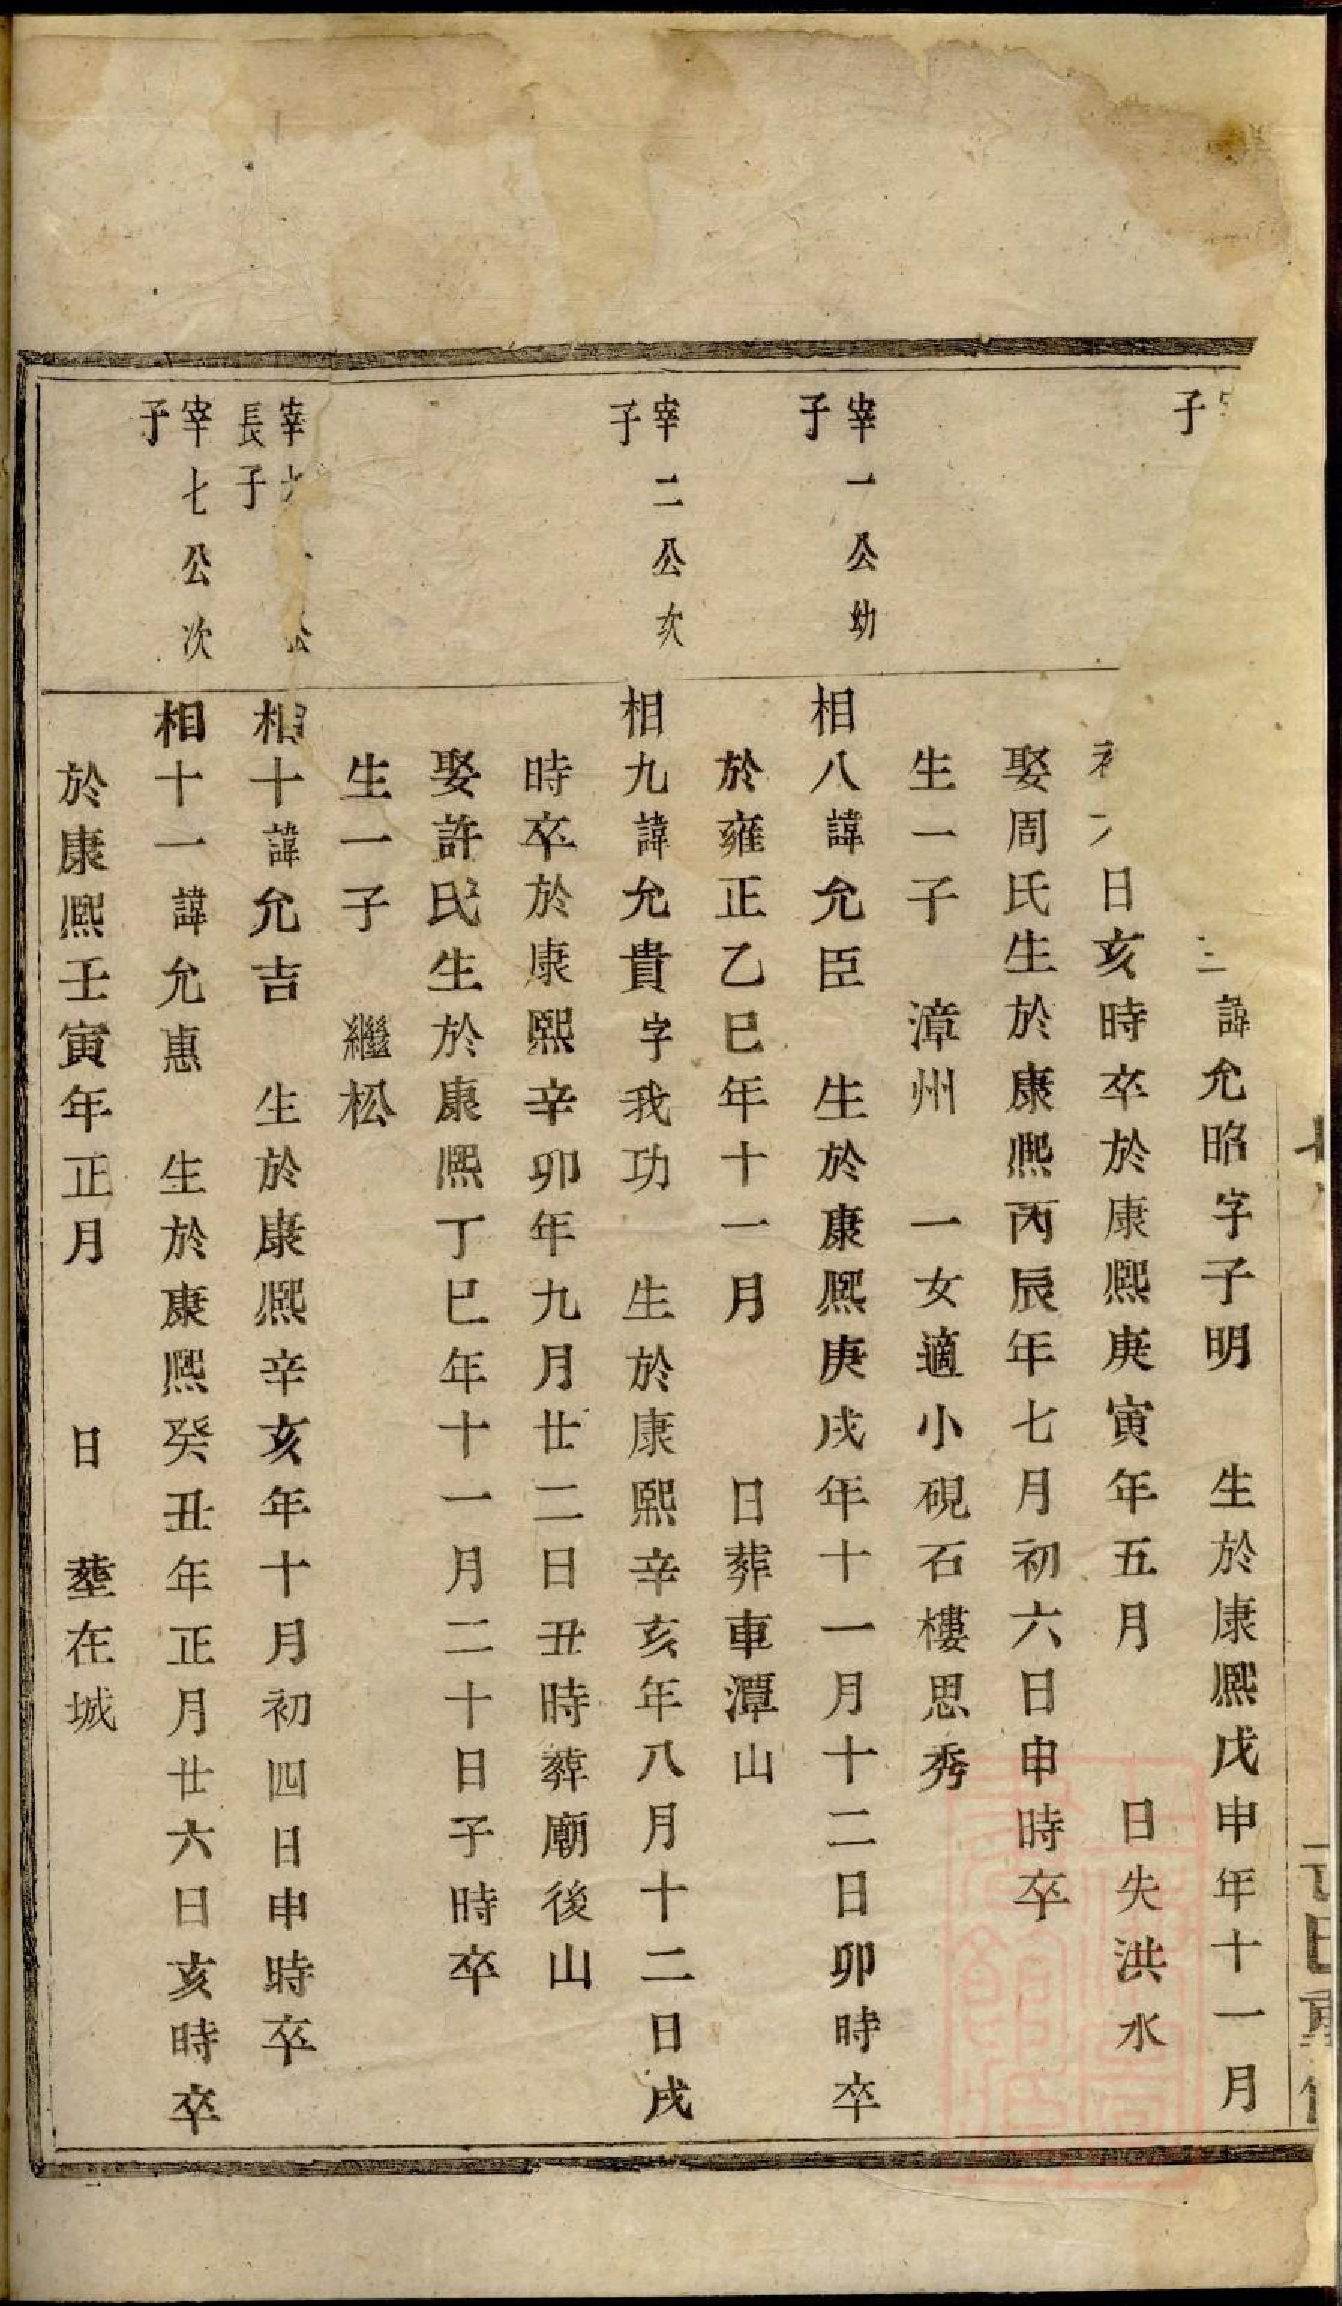 子
諱允昭字子明 生於康熙戊申年十一月
日亥時卒於康熙庚寅年五月 日失洪水
娶周氏生於康熙丙辰年七月初六日申時卒
生一子 漳州 一女適小硯石樓思秀
宰一公幼
子
相八諱允臣 生於康熙庚戌年十一月十二日卯時卒
於雍正乙巳年十一月 日葬車潭山
宰二公次
子
相九諱允貴字我功 生於康熙辛亥年八月十二日戌
時卒於康熙辛卯年九月廿二日丑時葬廟後山
娶許氏生於康熙丁巳年十一月二十日子時卒
生一子 繼松
宰 公
長子
相十諱允吉 生於康熙辛亥年十月初四日申時卒
宰七公次
子
相十一諱允惠 生於康熙癸丑年正月廿六日亥時卒
於康熙壬寅年正月 日 塟在城